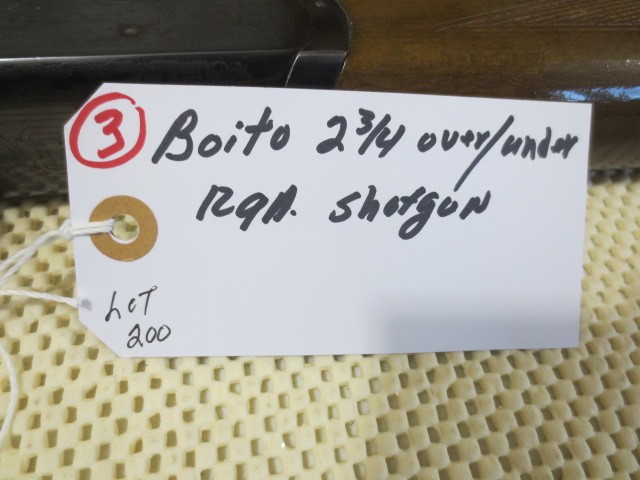 3 Boito 2 3/4 over/under
12gA. shotgun
LOT
200